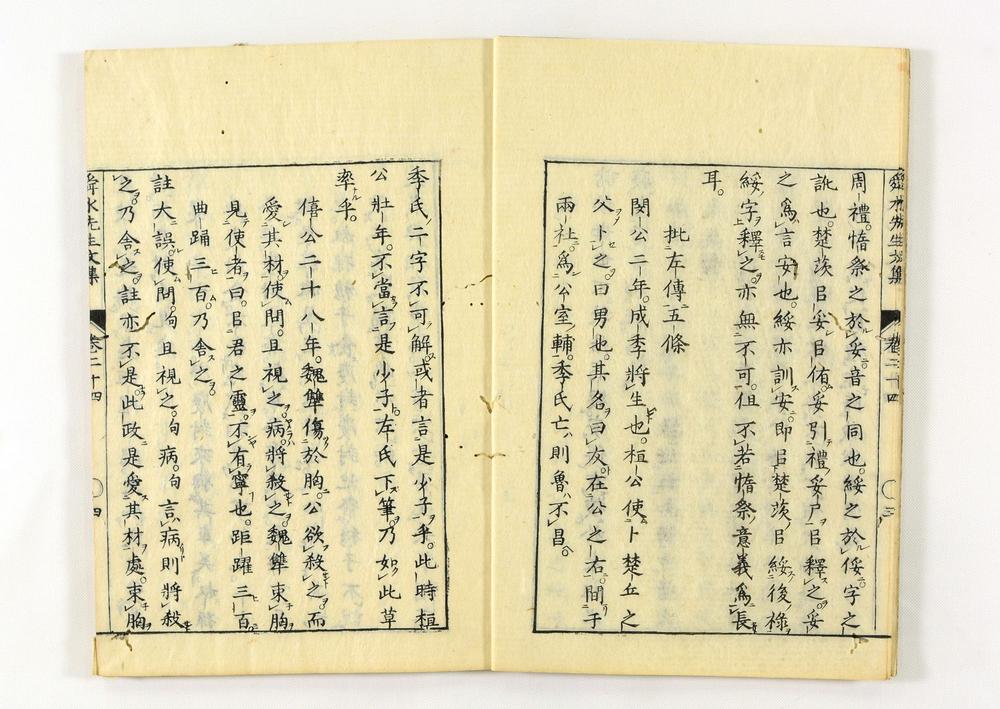 舜水先生文集 卷二十四 三
周禮。惰祭之於妥音之同也。綏之於俀字之
訛也。楚茨㠯妥㠯侑。妥引禮妥尸㠯釋之。妥
之爲言安也。綏亦訓安。即㠯楚茨㠯綏後祿
綏字釋之。亦無不可。但不若惰祭意義爲長
耳。
批左傳五條
閔公二年。成季將生也。桓公使卜楚丘之
父卜之。曰男也。其名曰友。在公之右。間于
兩社。爲公室輔。季氏亡。則魯不昌。
季氏二字不可解。或者言是少子乎。此時桓
公壯年。不當言是少子。左氏下筆。乃如此草
率乎。
僖公二十八年。魏犨傷於胸。公欲殺之。而
愛其材。使問。且視之。病將殺之。魏犨束胸
見使者曰。㠯君之靈。不有寧也。距躍三百。
曲踊三百。乃舍之。
註大誤。使問。句且視之。句病。句言病則將殺
之。乃舍之。註亦不是。此政是愛其材處。束胸
舜水先生文集 卷二十四 四